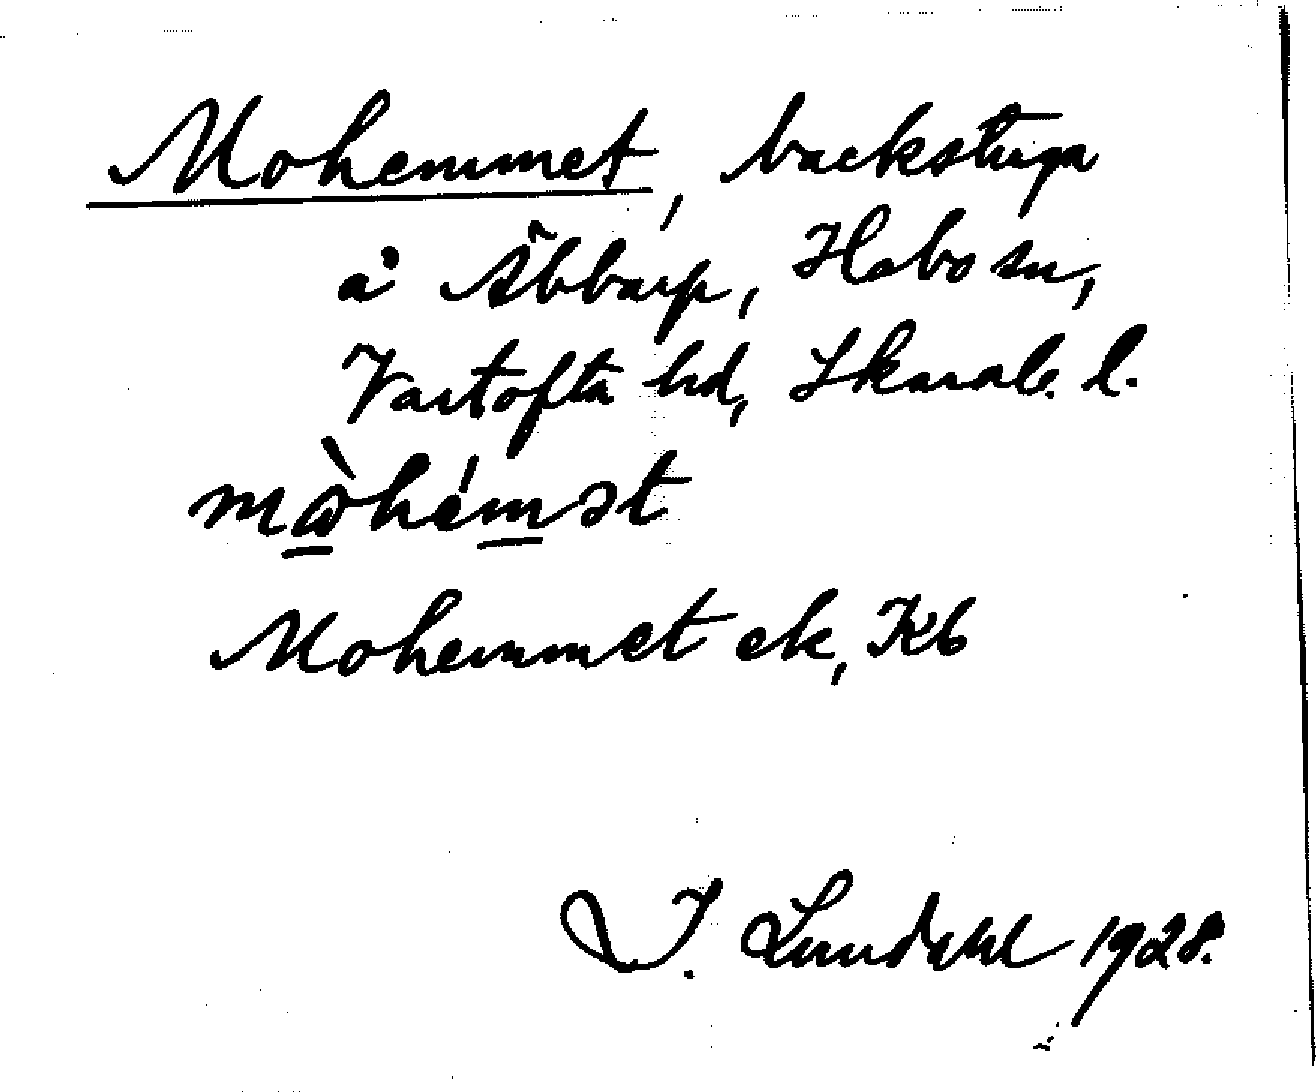 Mohemmet, backstuga
å Äbbarp, Habo sn,
Vartofta hd, Skarab. l.
mɷ̀hémət
Mohemmet ek, Kb
I. Lundahl 1928.